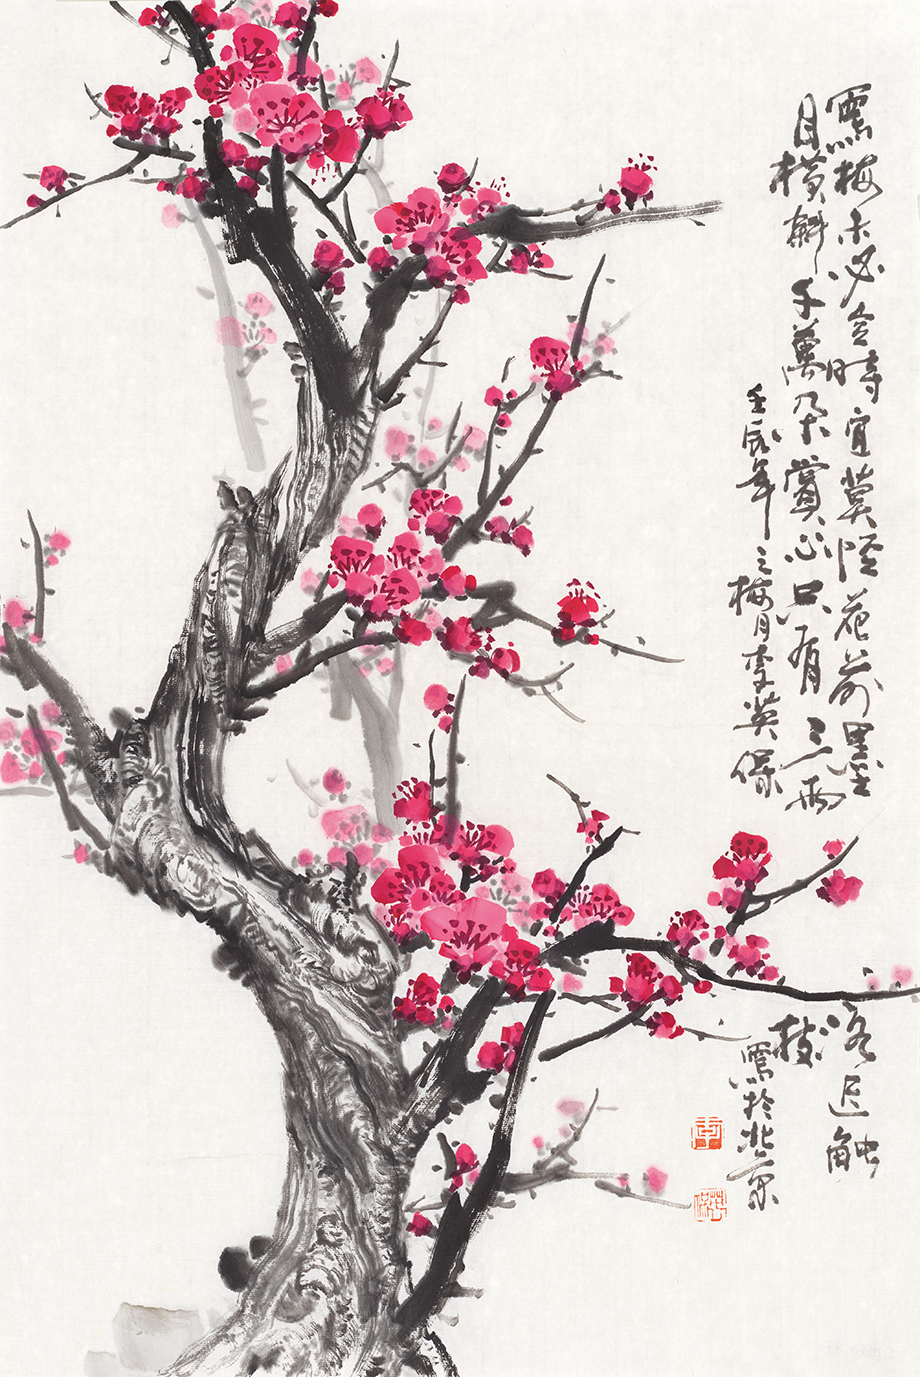 寫梅未必合時宜莫怪花前墨落迟触
目橫斜千萬朵賞心只有三兩枝
壬辰年之梅月李英保寫於北京
李